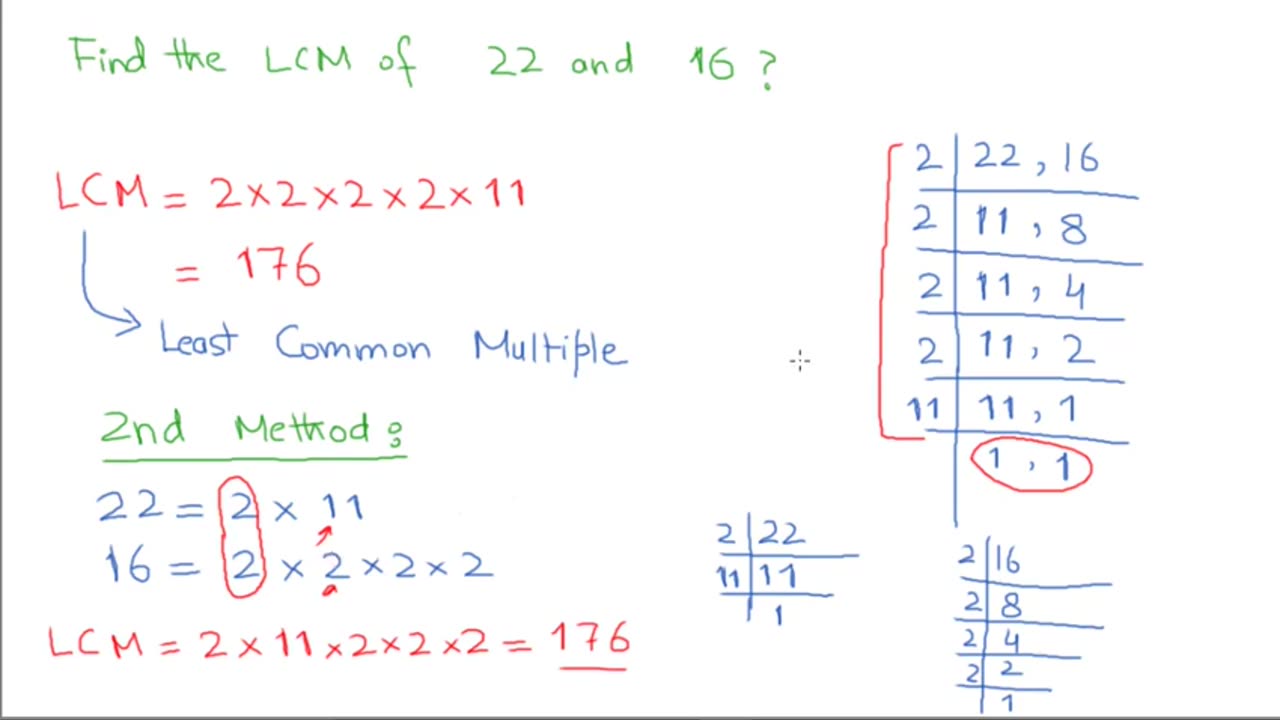 Find the LCM of 22 and 16?
LCM = 2×2×2×2×11
= 176
Least Common Multiple
2nd Method:
22 = 2 × 11
16 = 2 × 2 × 2 × 2
LCM = 2 × 11 × 2 × 2 × 2 = 176
2 | 22, 16
2 | 11, 8
2 | 11, 4
2 | 11, 2
11 | 11, 1
1, 1
2 | 22
11 | 11
1
2 | 16
2 | 8
2 | 4
2 | 2
1